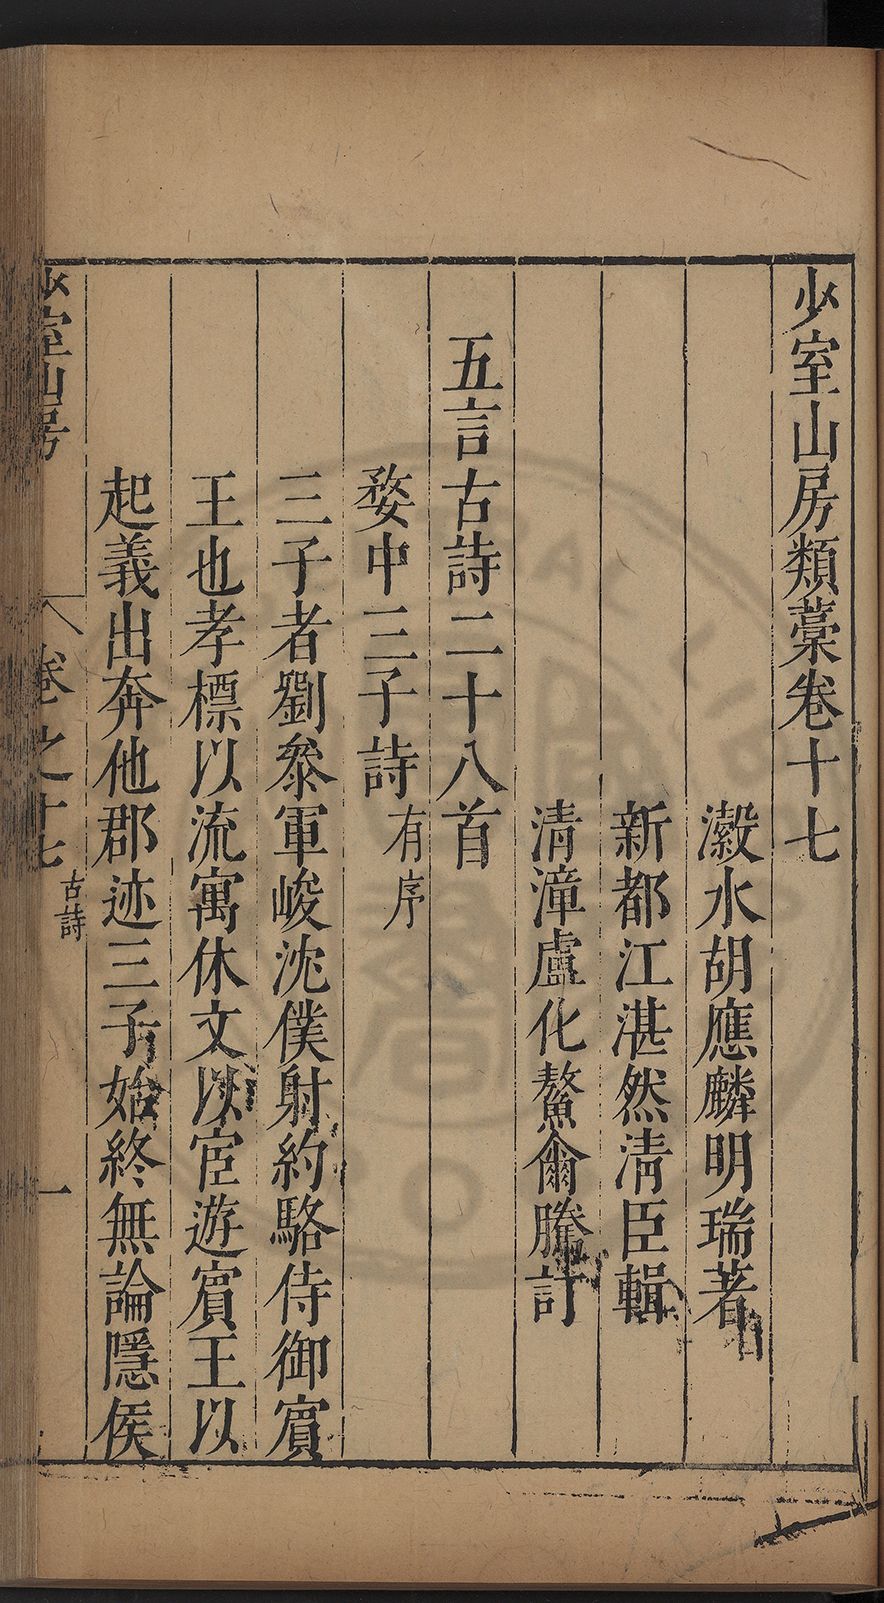 少室山房類藁卷十七
瀫水胡應麟明瑞著
新都江湛然清臣輯
清漳盧化鰲爾騰訂
五言古詩二十八首
婺中三子詩有序
三子者劉叅軍峻沈僕射約駱侍御賓
王也孝標以流寓休文以宦遊賓王以
起義出奔他郡迹三子始終無論隱侯
少室山房 卷之十七 古詩 一